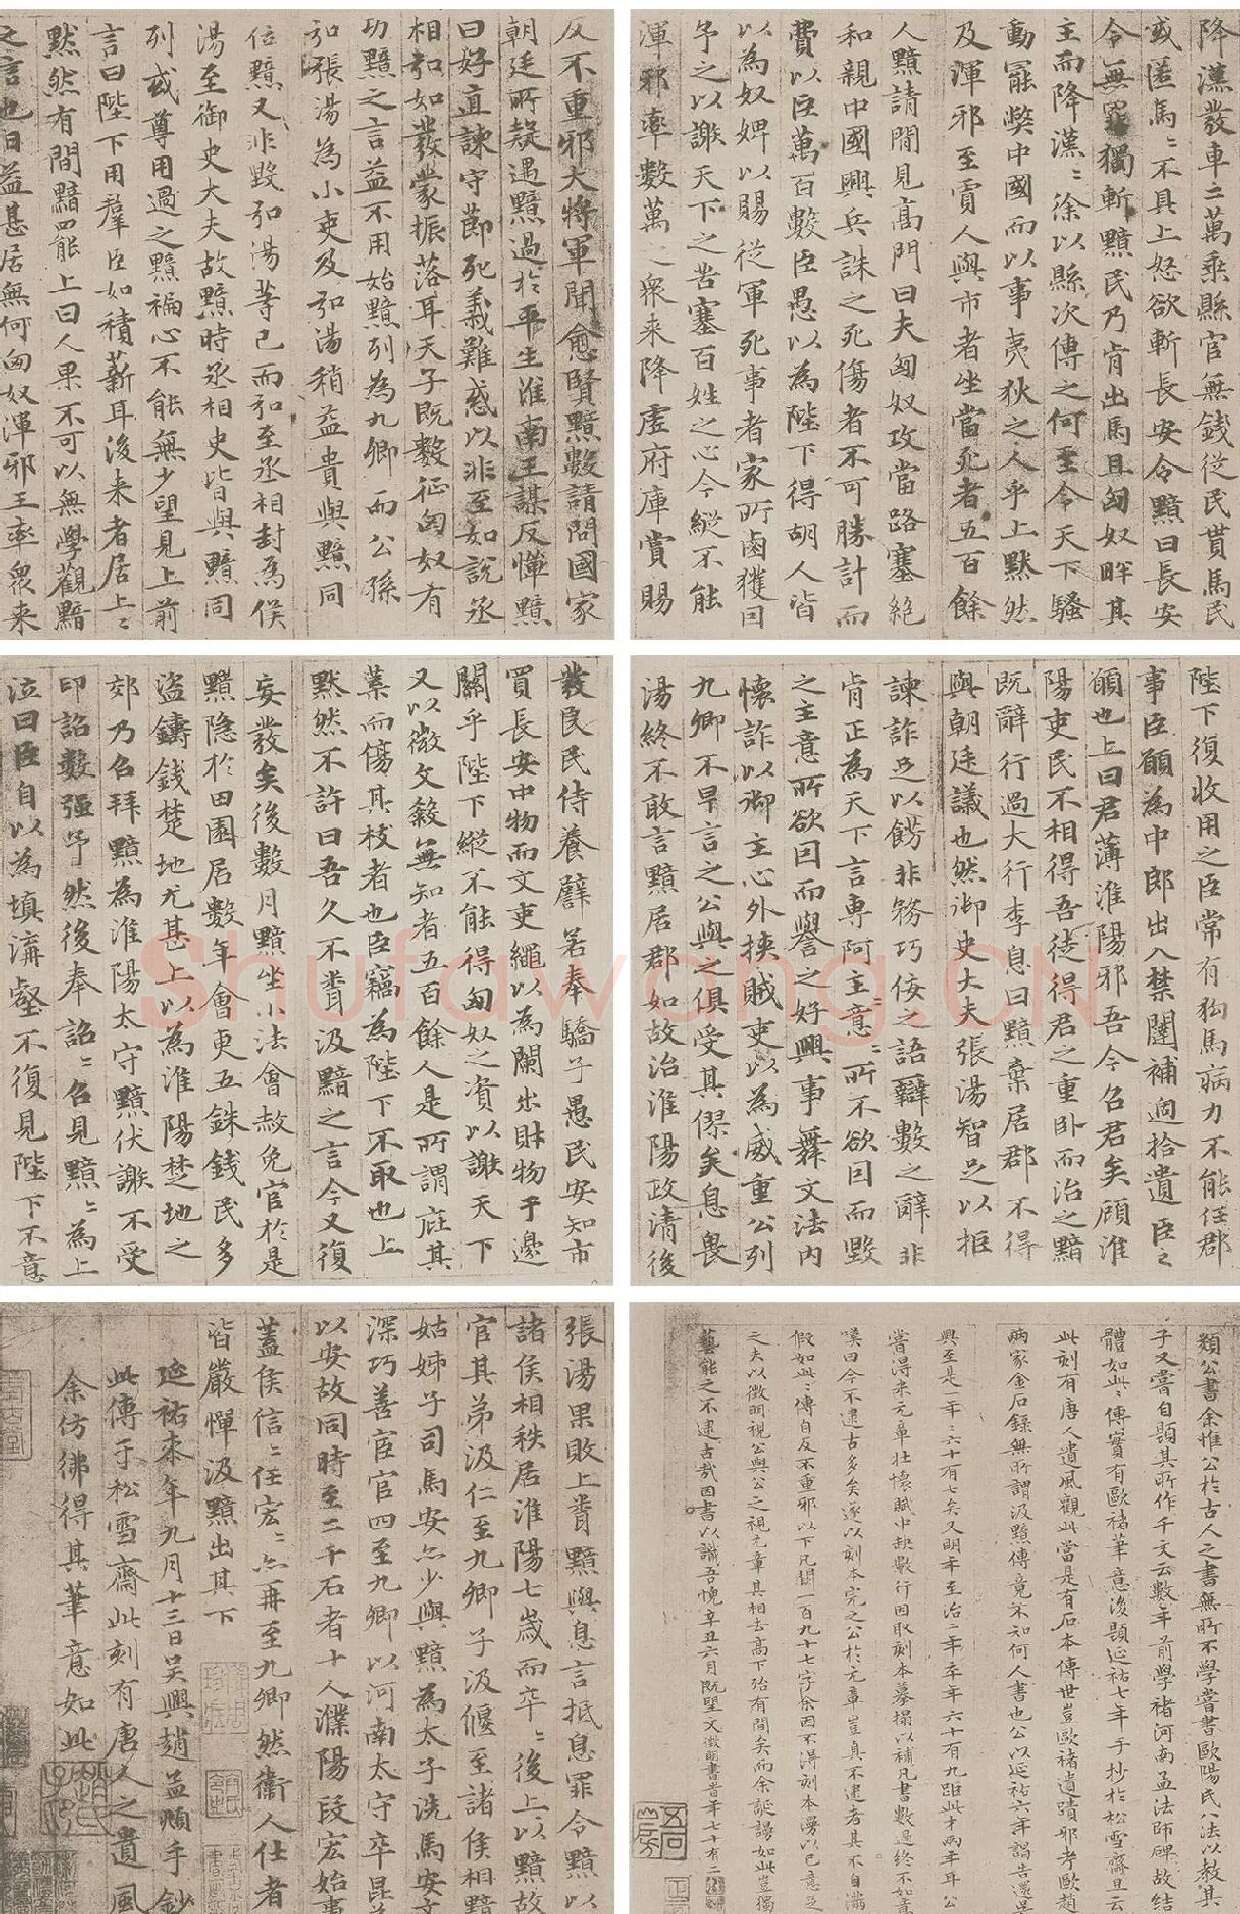 反不重邪大將軍聞愈賢黯數請問國家
朝廷所疑遇黯過於平生淮南王謀反憚黯
曰好直諫守節死義難惑以非至如說丞
相弘如發蒙振落耳天子既數征匈奴有
功黯之言益不用始黯列為九卿而公孫
弘張湯為小吏及弘湯稍益貴與黯同
位黯又非毀弘湯等已而弘至丞相封為侯
湯至御史大夫故黯時丞相史皆與黯同
列或尊用過之黯褊心不能無少望見上前
言曰陛下用羣臣如積薪耳後来者居上〻
默然有間黯罷上曰人果不可以無學觀黯
之言也日益甚居無何匈奴渾邪王率衆来
降漢發車二萬乘縣官無錢從民貰馬民
或匿馬〻不具上怒欲斬長安令黯曰長安
令無罪獨斬黯民乃肯出馬且匈奴畔其
主而降漢〻徐以縣次傳之何至令天下騷
動罷弊中國而以事夷狄之人乎上默然
及渾邪至賈人與市者坐當死者五百餘
人黯請間見高門曰夫匈奴攻當路塞絶
和親中國興兵誅之死傷者不可勝計而
費以巨萬百數臣愚以為陛下得胡人皆
以為奴婢以賜從軍死事者家所鹵獲因
予之以謝天下之苦塞百姓之心今縱不能
渾邪率數萬之衆来降虛府庫賞賜
發良民侍養譬若奉驕子愚民安知市
買長安中物而文吏繩以為闌出財物乎邊
關乎陛下縱不能得匈奴之資以謝天下
又以微文殺無知者五百餘人是所謂庇其
葉而傷其枝者也臣竊為陛下不取也上
默然不許曰吾久不聞汲黯之言今又復
妄發矣後數月黯坐小法會赦免官於是
黯隱於田園居數年會更五銖錢民多
盜鑄錢楚地尤甚上以為淮陽楚地之
郊乃召拜黯為淮陽太守黯伏謝不受
印詔數强予然後奉詔〻召見黯〻為上
泣曰臣自以為填溝壑不復見陛下不意
陛下復收用之臣常有狗馬病力不能任郡
事臣願為中郎出入禁闥補過拾遺臣之
願也上曰君薄淮陽邪吾今召君矣顧淮
陽吏民不相得吾徒得君之重卧而治之黯
既辭行過大行李息曰黯棄居郡不得
與朝廷議也然御史大夫張湯智足以拒
諫詐足以餙非務巧佞之語辯數之辭非
肯正為天下言專阿主意〻所不欲因而毀
之主意所欲因而譽之好興事舞文法内
懷詐以御主心外挾賊吏以為威重公列
九卿不早言之公與之俱受其僇矣息畏
湯終不敢言黯居郡如故治淮陽政清後
張湯果敗上聞黯與息言抵息罪令黯以
諸侯相秩居淮陽七歲而卒〻後上以黯故
官其弟汲仁至九卿子汲偃至諸侯相黯
姑姊子司馬安亦少與黯為太子洗馬安文
深巧善宦官四至九卿以河南太守卒昆弟
以安故同時至二千石者十人濮陽段宏始事
蓋侯信〻任宏〻亦再至九卿然衛人仕者
皆嚴憚汲黯出其下
延祐柒年九月十三日吴興趙孟頫手鈔
此傳于松雪齋此刻有唐人之遺風
余仿彿得其筆意如此
類公書余惟公於古人之書無所不學嘗書歐陽氏八法以教其
子又嘗自題其所作千文云數年前學褚河南孟法師碑故結
體如此〻傳實有歐褚筆意後題延祐七年手抄於松雪齋且云
此刻有唐人遺風觀此當是有石本傳世豈歐褚遺蹟邪考歐趙
兩家金石錄無所謂汲黯傳竟不知何人書也公以延祐六年謁告還吳
興至是一年六十有七矣又明年至治二年卒年六十有九距此才兩年耳公
嘗得米元章壯懷賦中缺數行因取刻本摹搨以補凡書數過終不如意
嘆曰今不逮古多矣遂以刻本完之公於元章豈真不逮者其不自滿
假如此〻傳自反不重邪以下凡闕一百九十七字余因不得刻本漫以己意足
之夫以徵明視公與公之視元章其相去高下殆有間矣而余誕謾如此豈獨
藝能之不逮古哉因書以識吾愧辛丑六月既望文徵明書昔年七十有二
Shufawang.CN